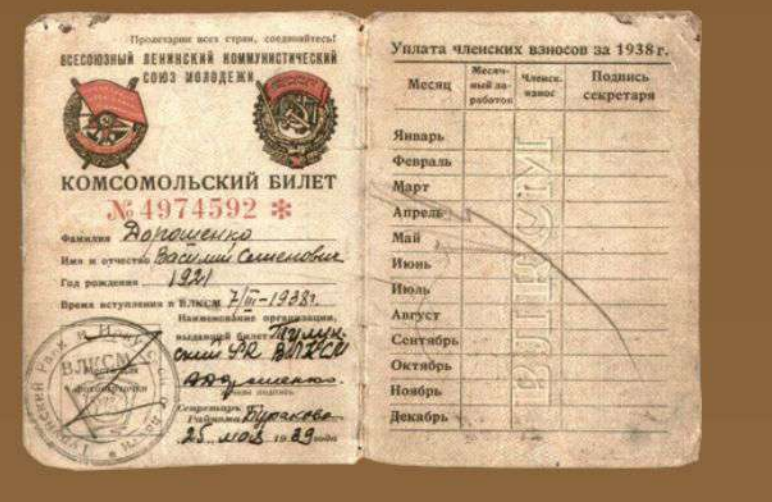 Пролетарии всех стран, соединяйтесь!
ВСЕСОЮЗНЫЙ ЛЕНИНСКИЙ КОММУНИСТИЧЕСКИЙ
СОЮЗ МОЛОДЕЖИ
КОМСОМОЛЬСКИЙ БИЛЕТ
№ 4974592 *
Фамилия Дорошенко
Имя и отчество Василий Семенович
Год рождения 1921
Время вступления в ВЛКСМ 7/III-1938г.
Наименование организации,
выдавшей билет Тулун-
ский РК ВЛКСМ
ВЛКСМ
Место для
фотокарточки
Секретарь
Райкома Буракова
25 мая 1939 года
Уплата членских взносов за 1938 г.
Месяц
Месяч-
ный за-
работок
Членск.
взнос
Подпись
секретаря
Январь
Февраль
Март
Апрель
Май
Июнь
Июль
Август
Сентябрь
Октябрь
Ноябрь
Декабрь
ВЛКСМ